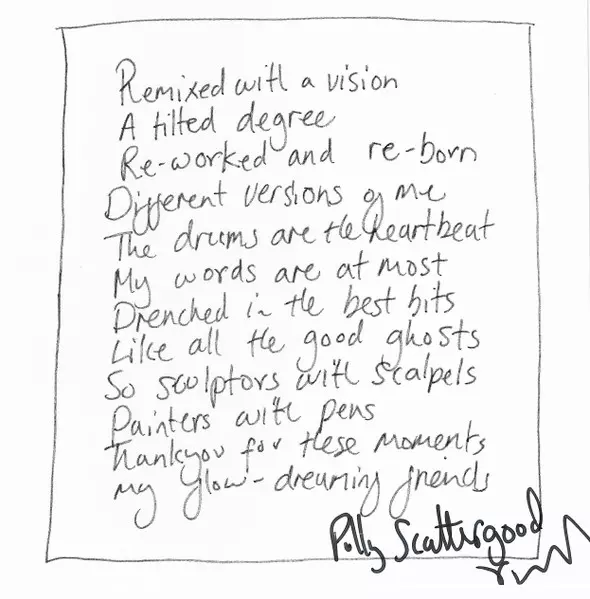 Remixed with a vision
A tilted degree
Re-worked and re-born
Different versions of me
The drums are the heartbeat
My words are at most
Drenched in the best bits
Like all the good ghosts
So sculptors with scalpels
Painters with pens
Thankyou for these moments
My glow-dreaming friends
Polly Scattergood